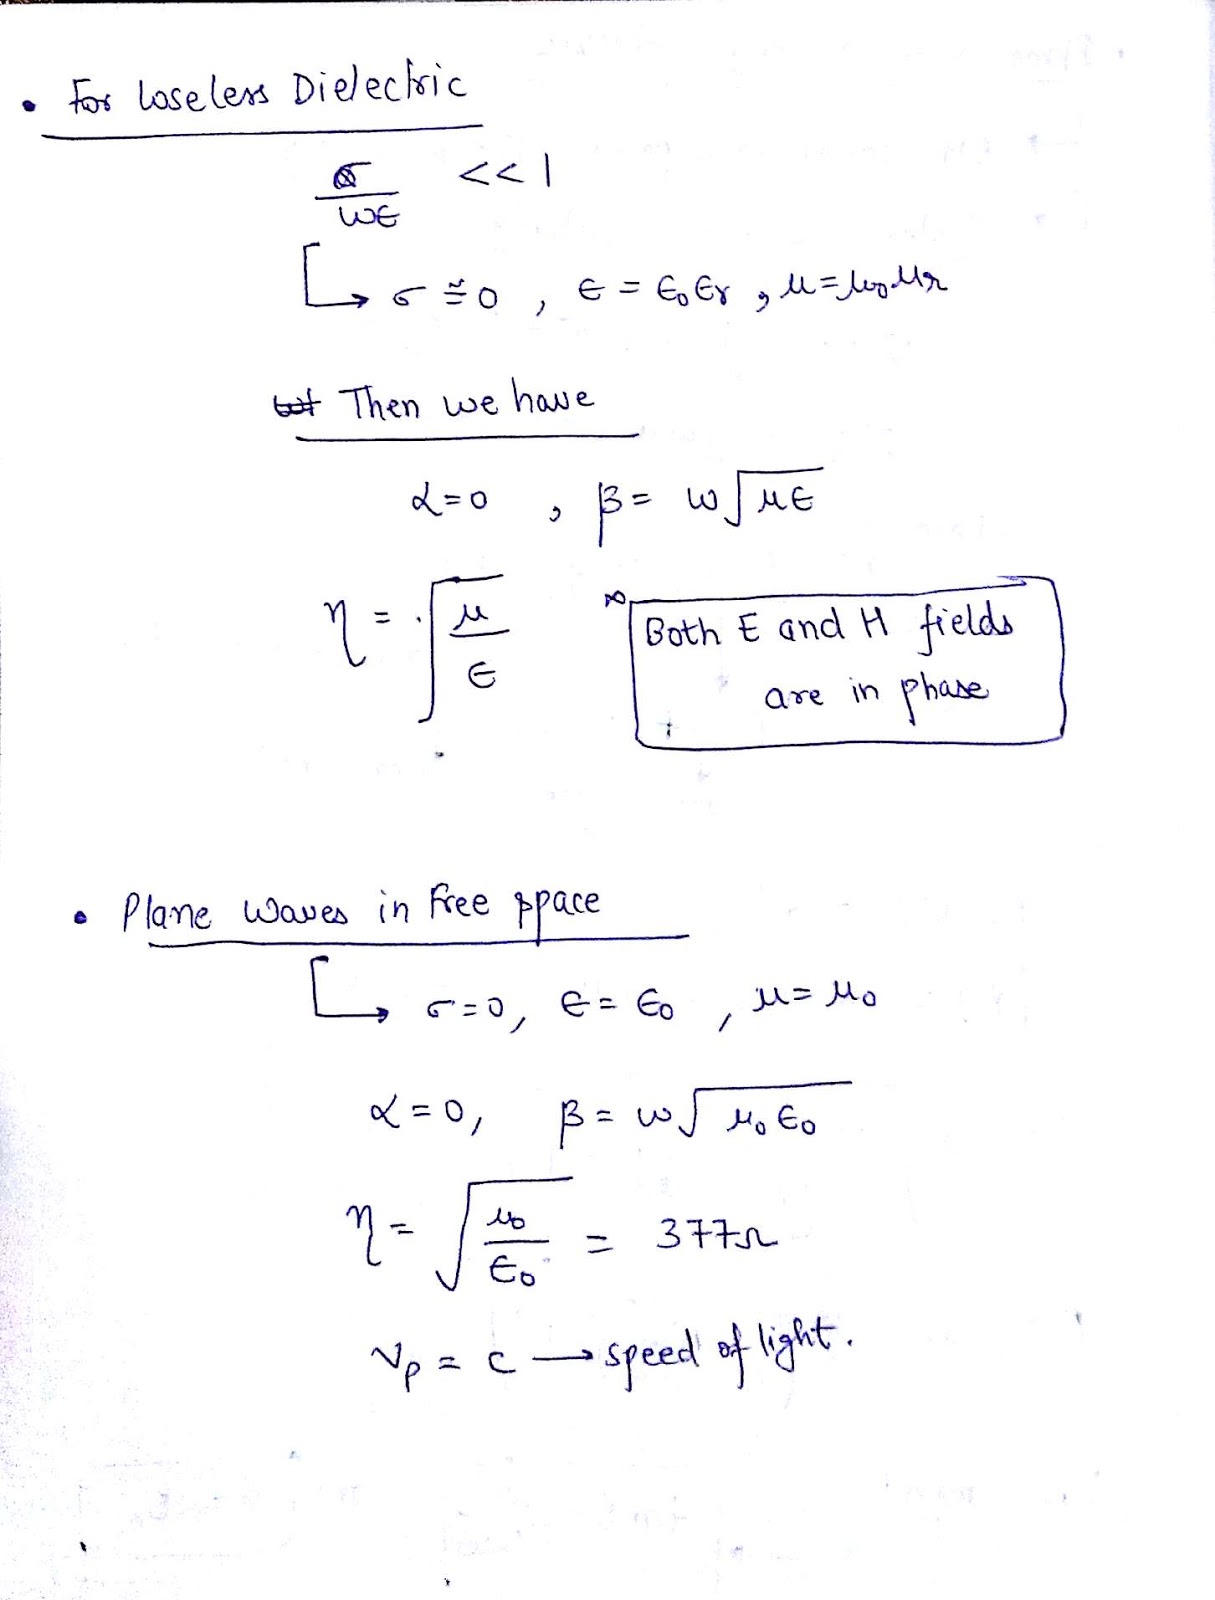 • For loseless Dielectric
σ/ωϵ << 1
↳ σ ≅ 0 , ϵ = ϵ₀ϵr , μ = μ₀μr
Then we have
α=0 , β = ω√μϵ
η = √μ/ϵ
Both E and H fields
are in phase
• Plane waves in free space
↳ σ=0, ϵ = ϵ₀ , μ = μ₀
α=0, β = ω√μ₀ϵ₀
η = √μ₀/ϵ₀ = 377Ω
Vp = c → speed of light.